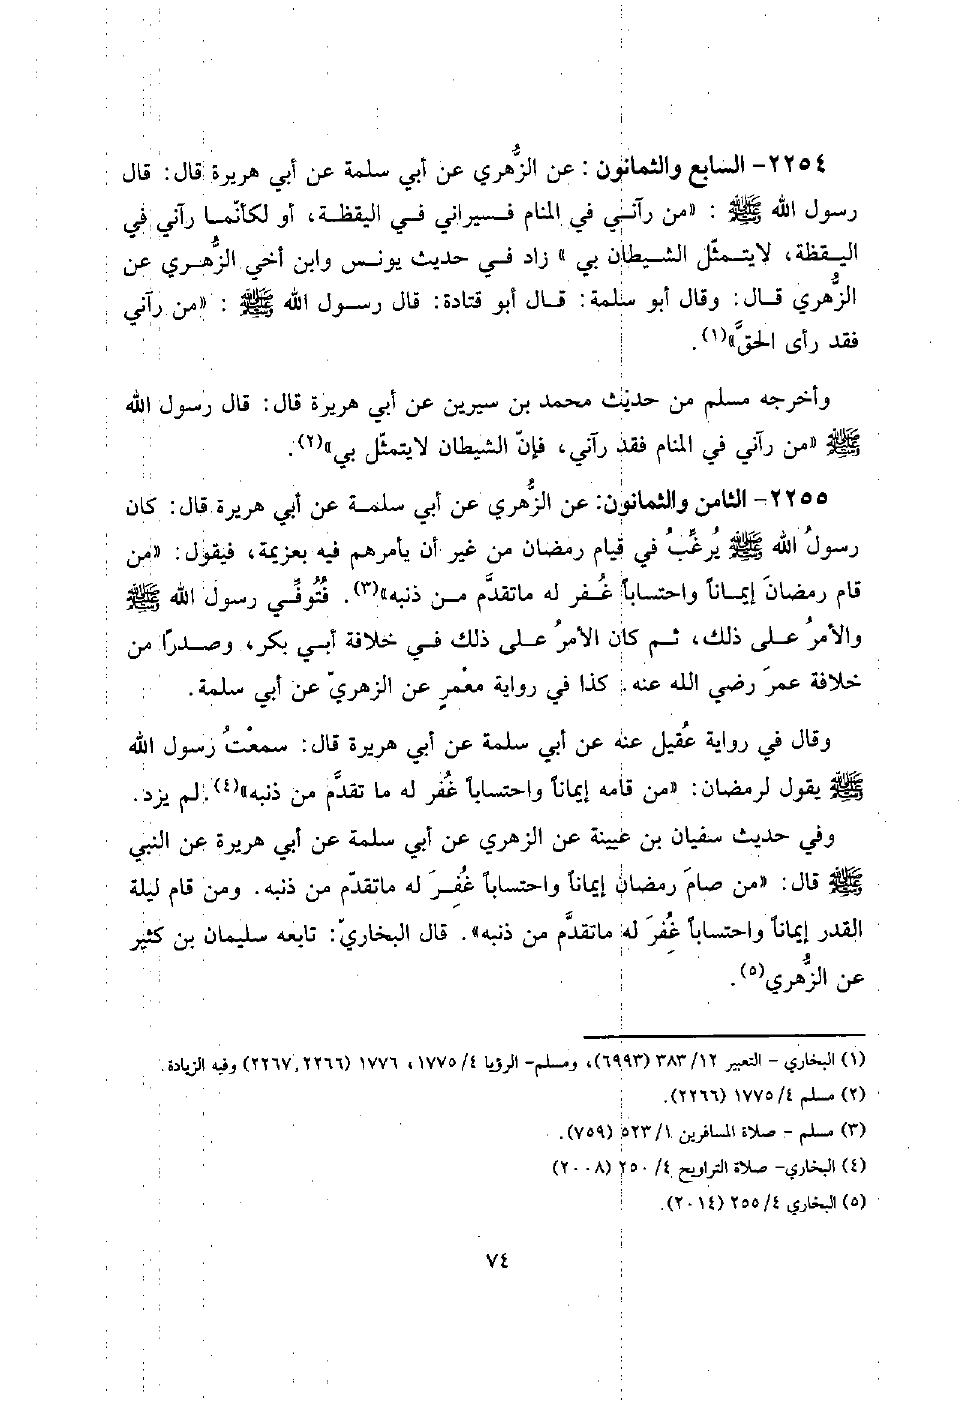 ٢٢٥٤- السابع والثمانون : عن الزُّهري عن أبي سلمة عن أبي هريرة قال: قال
رسول الله ﷺ : «من رآني في المنام فسيراني في اليقظة، أو لكأنّما رآني في
اليقظة، لايتمثّل الشيطان بي » زاد في حديث يونس وابن أخي الزُّهري عن
الزُّهري قال: وقال أبو سلمة: قال أبو قتادة: قال رسول الله ﷺ : «من رآني
فقد رأى الحقَّ»(١).
وأخرجه مسلم من حديث محمد بن سيرين عن أبي هريرة قال: قال رسول الله
ﷺ «من رآني في المنام فقد رآني، فإنّ الشيطان لايتمثّل بي»(٢).
٢٢٥٥- الثامن والثمانون: عن الزُّهري عن أبي سلمة عن أبي هريرة قال: كان
رسولُ الله ﷺ يُرغِّبُ في قيام رمضان من غير أن يأمرهم فيه بعزيمة، فيقول: «من
قام رمضانَ إيماناً واحتساباً غُفر له ماتقدَّم من ذنبه»(٣). فتُوُفِّي رسول الله ﷺ
والأمرُ على ذلك، ثم كان الأمرُ على ذلك في خلافة أبي بكر، وصدرًا من
خلافة عمرَ رضي الله عنه. كذا في رواية معْمرٍ عن الزهريّ عن أبي سلمة.
وقال في رواية عُقيل عنه عن أبي سلمة عن أبي هريرة قال: سمعْتُ رسول الله
ﷺ يقول لرمضان: «من قامه إيماناً واحتساباً غُفر له ما تقدَّم من ذنبه»(٤). لم يزد.
وفي حديث سفيان بن عيينة عن الزهري عن أبي سلمة عن أبي هريرة عن النبي
ﷺ قال: «من صامَ رمضان إيماناً واحتساباً غُفِرَ له ماتقدّم من ذنبه. ومن قام ليلة
القدر إيماناً واحتساباً غُفِرَ له ماتقدَّم من ذنبه». قال البخاريّ: تابعه سليمان بن كثير
عن الزُّهري(٥).
(١) البخاري - التعبير ١٢/ ٣٨٣ (٦٩٩٣)، ومسلم- الرؤيا ٤/ ١٧٧٥، ١٧٧٦ (٢٢٦٦, ٢٢٦٧) وفيه الزيادة.
(٢) مسلم ٤/ ١٧٧٥ (٢٢٦٦).
(٣) مسلم - صلاة المسافرين ١/ ٥٢٣ (٧٥٩).
(٤) البخاري- صلاة التراويح ٤/ ٢٥٠ (٢٠٠٨)
(٥) البخاري ٤/ ٢٥٥ (٢٠١٤).
٧٤